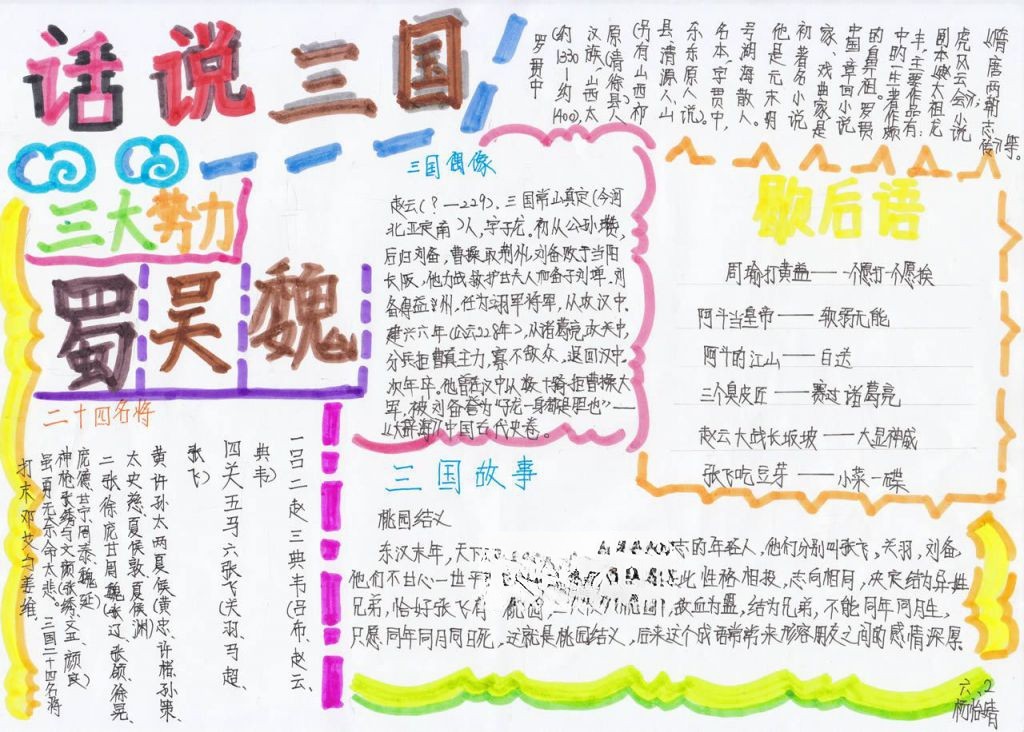 话说三国
罗贯中
(约1330—约1400),太
汉族,山西太
原(清徐县)人
(另有山西祁
县清源人,山
东东原人说)。
名本,字贯中,
号湖海散人。
他是元末明
初著名小说
家、戏曲家,是
中国章回小说
的鼻祖。罗贯
中的一生著作颇
丰,主要作品有:
剧本《赵太祖龙
虎风云会》;小说
《隋唐两朝志
传》等。
三大势力
蜀 吴 魏
三国偶像
赵云(?—229),三国常山真定(今河
北正定南)人,字子龙。初从公孙瓒,
后归刘备,曹操取荆州,刘备败于当阳
长阪,他力战救护甘夫人和备子刘禅。刘
备得益州,任为翊军将军,从攻汉中。
建兴六年(公元228年),从诸葛亮攻关中,
分兵拒曹真主力,寡不敌众,退回汉中。
次年卒。他曾
军,被刘备誉为“子龙一身都是胆也”——
《大辞海》中国古代史卷。
歇后语
周瑜打黄盖——一个愿打一个愿挨
阿斗当皇帝——软弱无能
阿斗的江山——白送
三个臭皮匠——赛过诸葛亮
赵云大战长坂坡——大显神威
张飞吃豆芽——小菜一碟
二十四名将
一吕二赵三典韦(吕布、赵云、
典韦)
四关五马六张飞(关羽、马超、
张飞)
黄许孙太两夏侯(黄忠、许褚、孙策、
太史慈、夏侯敦、夏侯渊)
二张徐庞甘周魏(张辽、张颌、徐晃、
庞德、甘宁、周泰、魏延)
神枪张绣与文颜(张绣、文丑、颜良)
虽勇无奈命太悲。三国二十四名将
打末邓艾与姜维
三国故事
桃园结义
东汉末年,天下 志的年轻人,他们分别叫张飞,关羽,刘备,
他们不甘心一世平 此性格相投,志向相同,决定结为异姓
兄弟,恰好张飞有 桃园, 歃血为盟,结为兄弟,不能同年同月生,
只愿同年同月同日死,这就是桃园结义,后来这个成语常常来形容朋友之间的感情深厚.
六、2